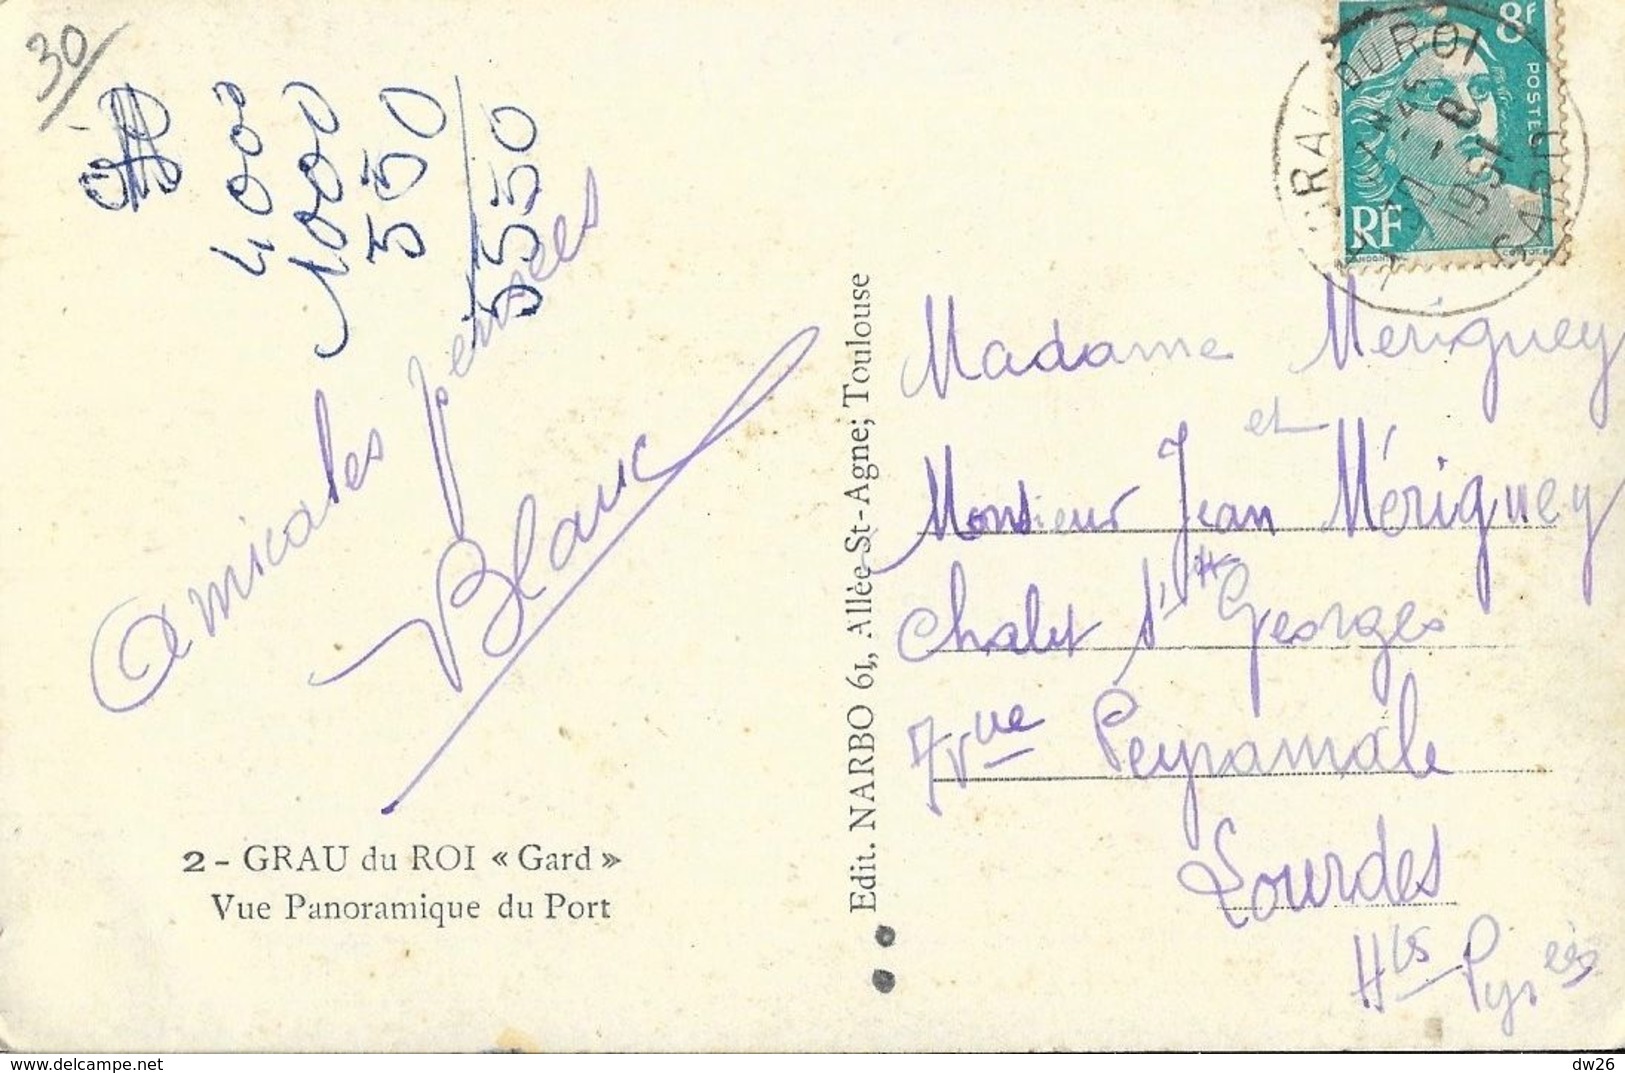 30
4000
1000
550
5550
Amicales pensées
Blanc
2 - GRAU du ROI « Gard »
Vue Panoramique du Port
Edit. NARBO 61, Allée St-Agne; Toulouse
8f
POSTES
RF
GRAU DU ROI
1951
GARD
Madame Mérigney
et
Monsieur Jean Mérigney
Chalet St Georges
Avue Peyramale
Lourdes
Htes Pyrées
www.delcampe.net
dw26